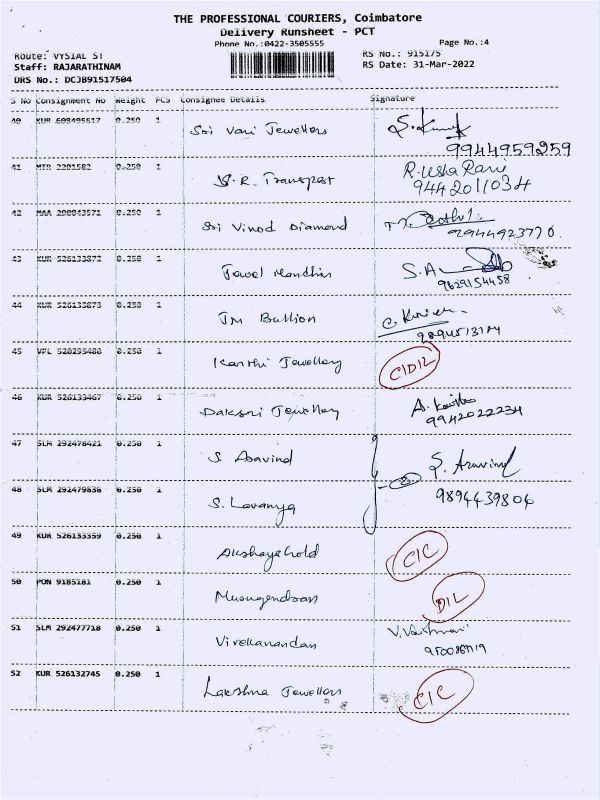 THE PROFESSIONAL COURIERS, Coimbatore
Delivery Runsheet - PCT
Phone No.:0422-3505555 Page No.:4
Route: VYSIAL ST RS No.: 915175
Staff: RAJARATHINAM RS Date: 31-Mar-2022
DRS No.: DCJB91517504
S No Consignment No Weight PCS Consignee Details Signature
40 KUR 608495617 0.250 1 Sri Vari Jewellers
9944959259
41 MTR 2201582 0.250 1 S.R. Transport R. Usha Rani
9442011034
42 MAA 0.250 1 Sri Vinod Diamond
9294492377 0.
43 KUR 526133872 0.250 1 Jewel Mandhir S.A
9629154458
44 KUR 526133873 0.250 1 JM Bullion
45 VPL 0.250 1 Kanthi Jewellery C/D/L
46 KUR 526133467 0.250 1 Daksri Jewellery A.
9942022234
47 SLM 292478421 0.250 1 S. Aravind S. Aravind
48 SLM 292479836 0.250 1 S. Lavanya 9894439804
49 KUR 526133359 0.250 1 Akshaya Gold C/C
50 PON 9185181 0.250 1 Murugendran D/L
51 SLM 292477718 0.250 1 Vivekanandan
52 KUR 526132745 0.250 1 Lakshna Jewellers C/C